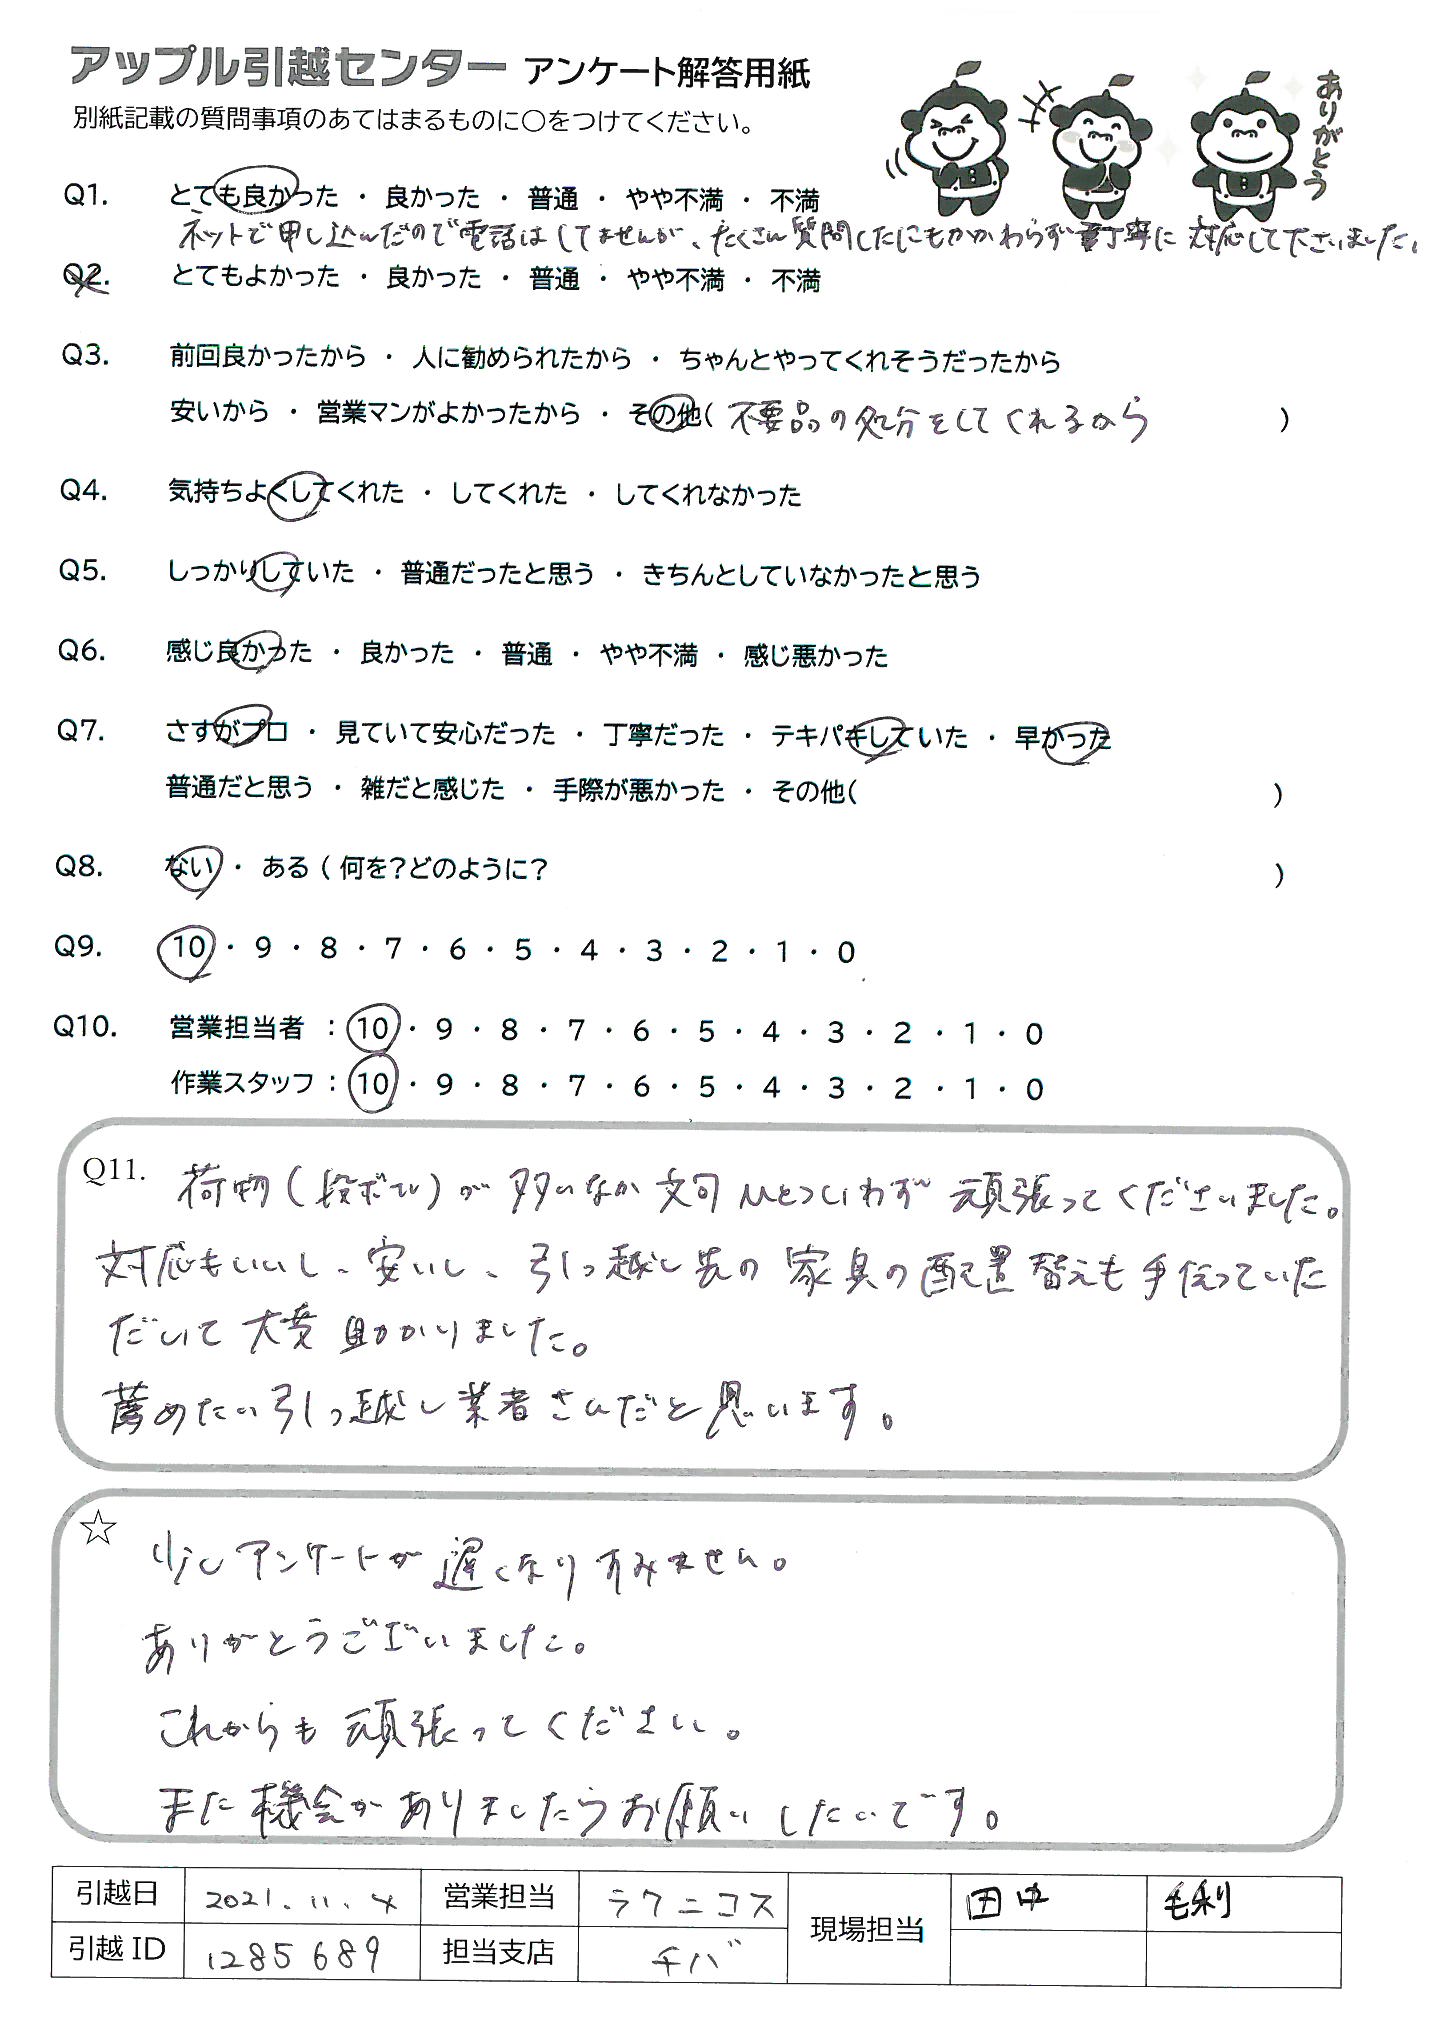 アップル引越センター アンケート解答用紙
別紙記載の質問事項のあてはまるものに○をつけてください。
ありがとう
Q1. とても良かった ・ 良かった ・ 普通 ・ やや不満 ・ 不満
ネットで申し込んだので電話はしてませんが、たくさん質問したにもかかわらず丁寧に対応して下さいました。
Q2. とてもよかった ・ 良かった ・ 普通 ・ やや不満 ・ 不満
Q3. 前回良かったから ・ 人に勧められたから ・ ちゃんとやってくれそうだったから
安いから ・ 営業マンがよかったから ・ その他( 不要品の処分をしてくれるから )
Q4. 気持ちよくしてくれた ・ してくれた ・ してくれなかった
Q5. しっかりしていた ・ 普通だったと思う ・ きちんとしていなかったと思う
Q6. 感じ良かった ・ 良かった ・ 普通 ・ やや不満 ・ 感じ悪かった
Q7. さすがプロ ・ 見ていて安心だった ・ 丁寧だった ・ テキパキしていた ・ 早かった
普通だと思う ・ 雑だと感じた ・ 手際が悪かった ・ その他( )
Q8. ない ・ ある ( 何を?どのように? )
Q9. 10 ・ 9 ・ 8 ・ 7 ・ 6 ・ 5 ・ 4 ・ 3 ・ 2 ・ 1 ・ 0
Q10. 営業担当者 : 10 ・ 9 ・ 8 ・ 7 ・ 6 ・ 5 ・ 4 ・ 3 ・ 2 ・ 1 ・ 0
作業スタッフ : 10 ・ 9 ・ 8 ・ 7 ・ 6 ・ 5 ・ 4 ・ 3 ・ 2 ・ 1 ・ 0
Q11. 荷物(段ボール)が多いなか文句ひとついわず頑張ってくださいました。
対応もいいし、安いし、引っ越し先の家具の配置替えも手伝っていた
だいて大変助かりました。
薦めたい引っ越し業者さんだと思います。
☆ 少しアンケートが遅くなりすみません。
ありがとうございました。
これからも頑張ってください。
また機会がありましたらお願いしたいです。
引越日 2021.11.4 営業担当 ラクニコス 現場担当 田中 毛利
引越ID 1285689 担当支店 チバ